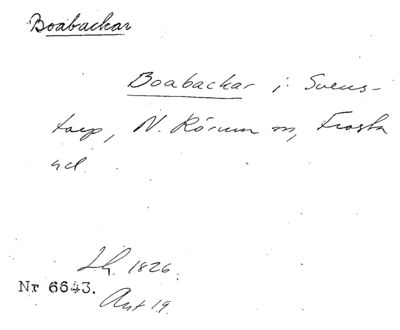 Boabackar
Boabackar i Svens-
torp, N. Rörum sn, Frosta
hd.
Lh. 1826.
Nr 6643.
Akt 19.